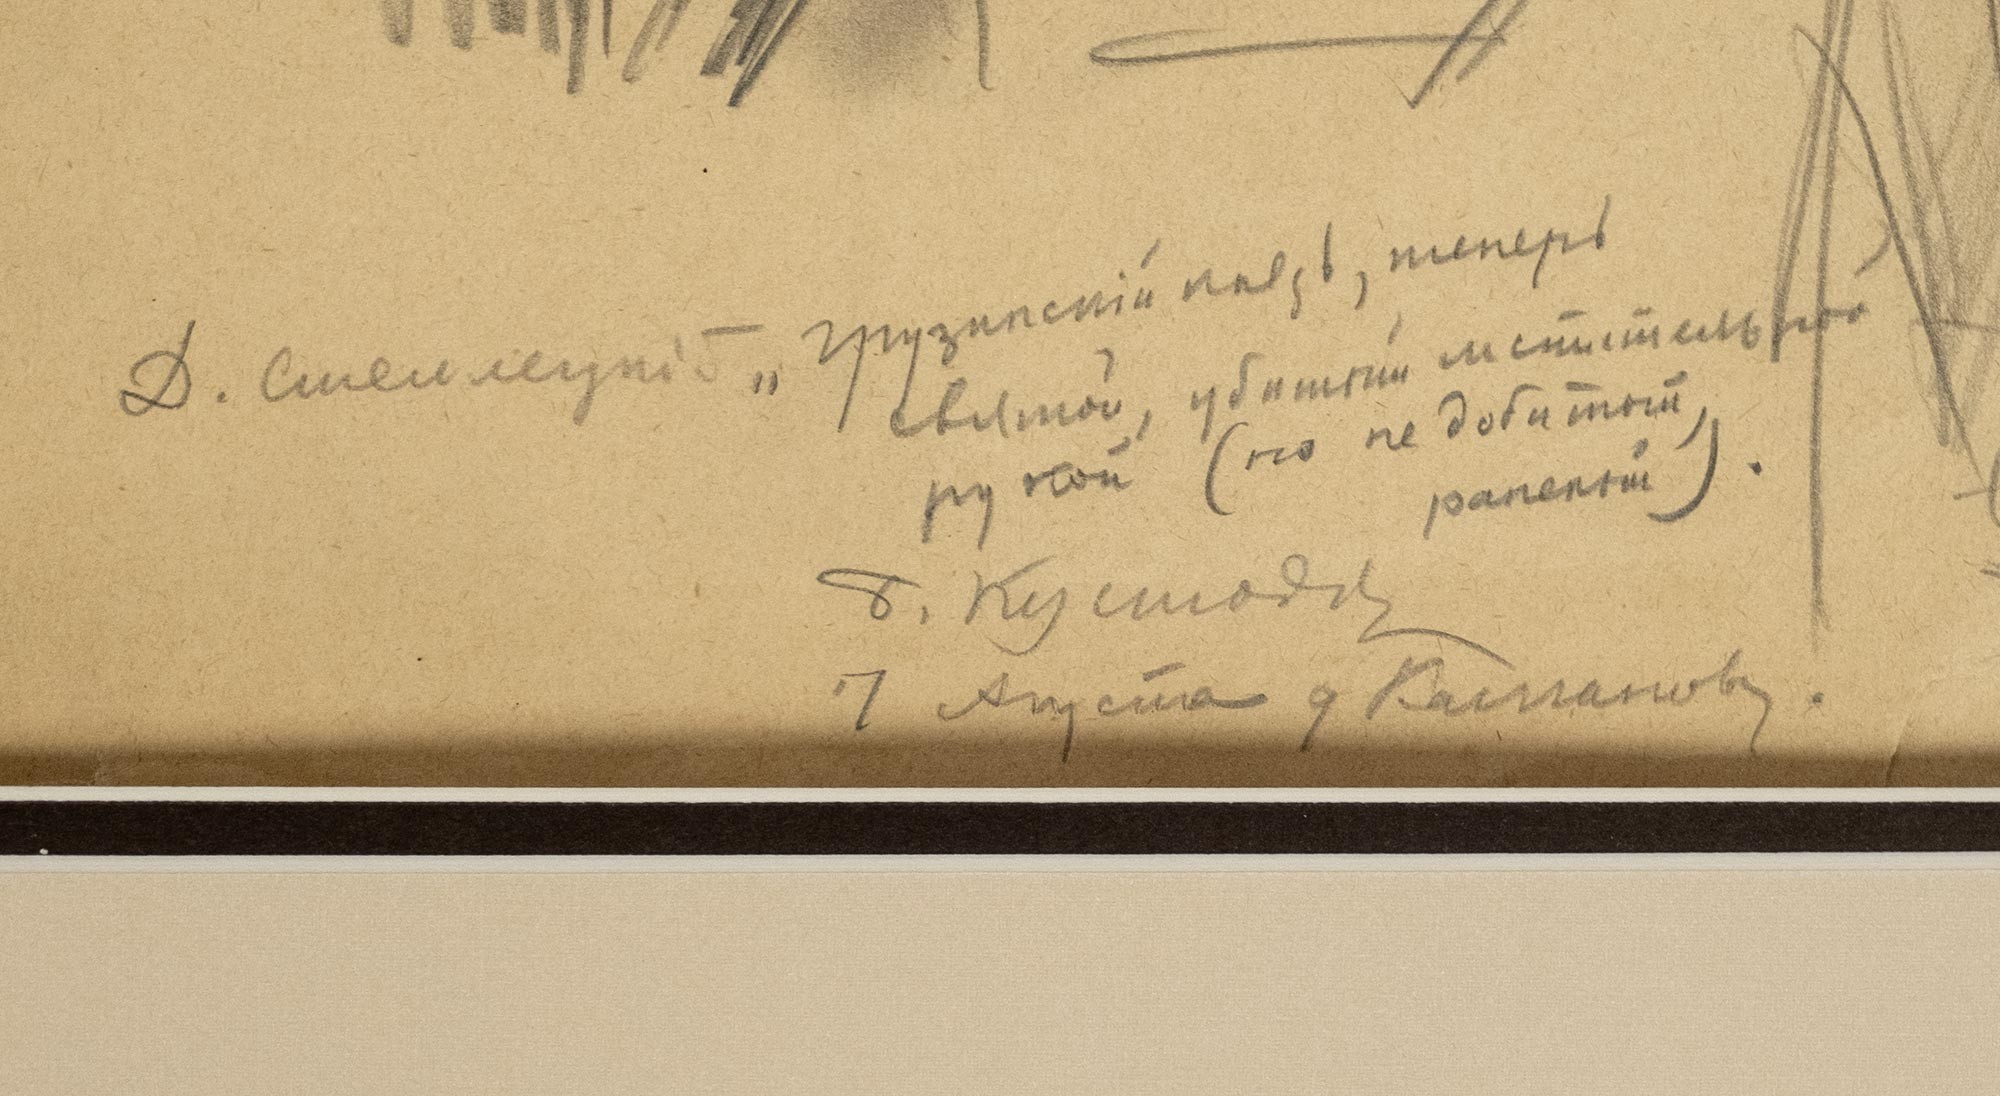 Д. Стеллецкій „Грузинскій князь, теперь
святой, убитый мстительной
рукой (но не добитый,
раненый).
Б. Кустодіев
7 Августа у